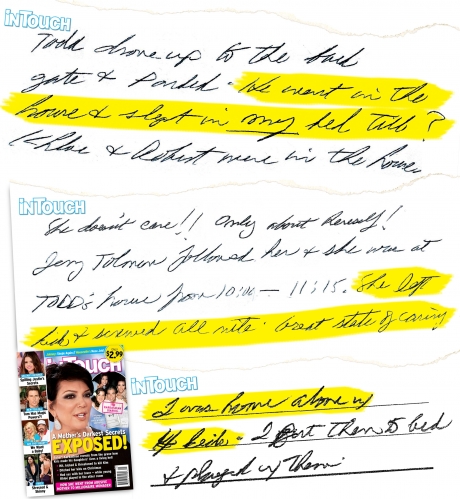 INTOUCH
Todd drove up to the back
gate & Parked - We went in the
house & slept in my bed Till ?
Khloe & Robert were in the house
INTOUCH
She doesn't care!! Only about Herself!
Jerry Tolman followed her & she was at
TODD's house from 10:00 - 11:15. She left
kids & screwed all nite. Great state of caring!
INTOUCH
I was home alone w/
4 kids - I put them to bed
& played w/ them
$2.99
INTOUCH
A Mother's Darkest Secrets
EXPOSED!